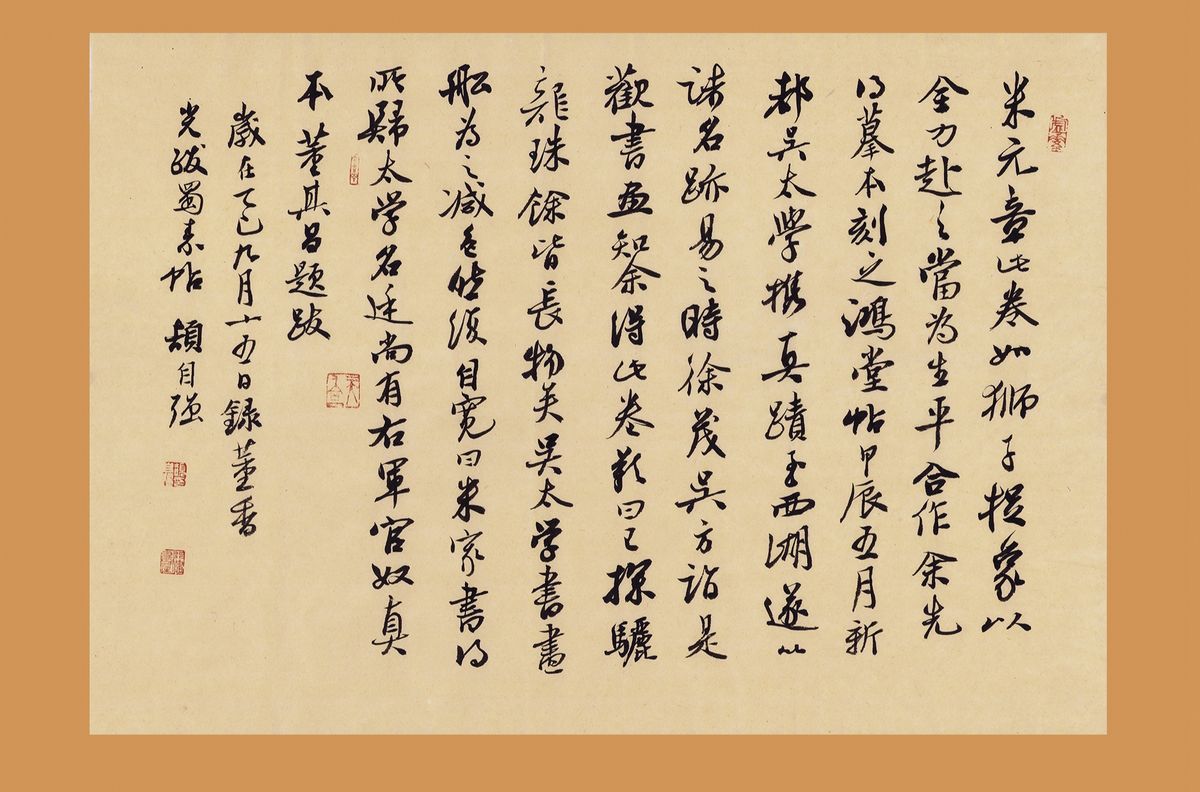 米元章此卷如狮子捉象以
全力赴之當为生平合作余先
得摹本刻之鴻堂帖甲辰五月新
都吴太學攜真蹟至西湖遂以
诸名跡易之時徐茂吴方詣是
觀書画知余得此卷歎曰已探驪
龍珠餘皆長物矣吴太学書畫
船为之减色然復自寬曰米家書得
所歸太学名廷尚有右軍官奴真
本董其昌題跋
歲在乙巳九月十五日録董香
光跋蜀素帖 自强